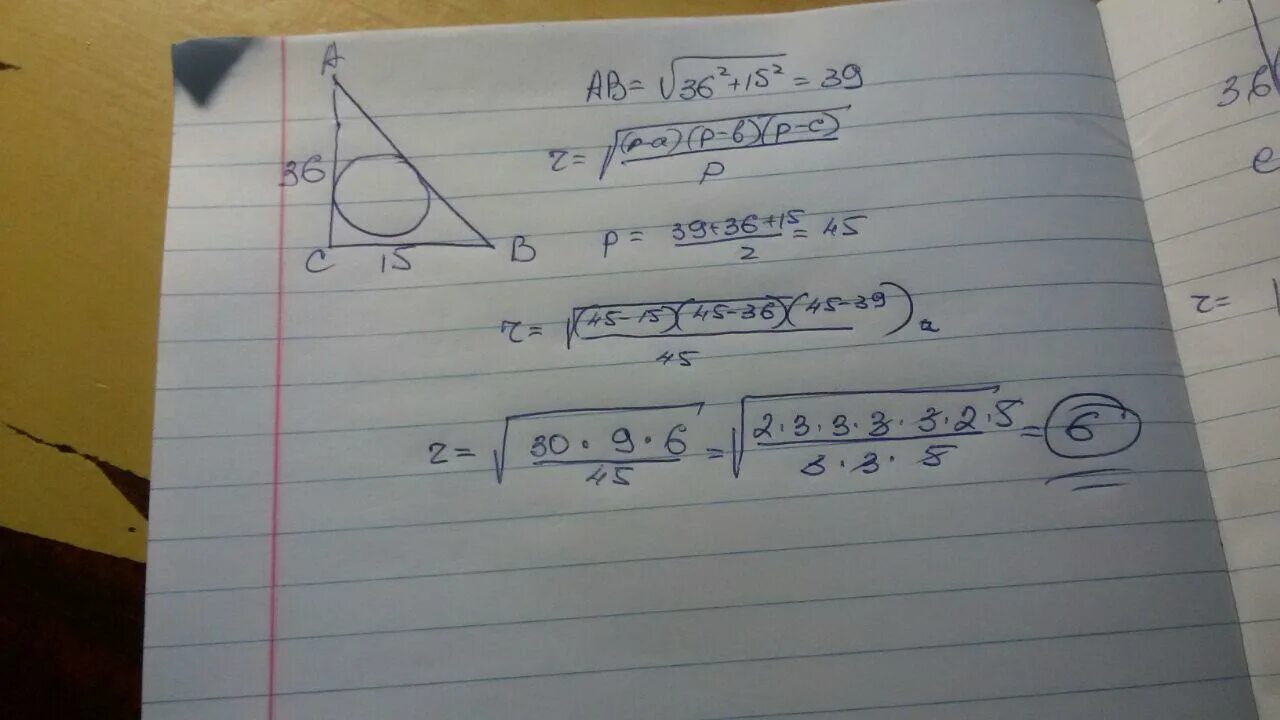 A
36
C 15 B
AB = √36² + 15² = 39
r = √(p-a)(p-b)(p-c) / p
p = 39+36+15 / 2 = 45
r = √(45-15)(45-36)(45-39) / 45 =
r = √30 · 9 · 6 / 45 = √2·3·3·3·3·2·5 / 3·3·5 = 6
36
e
r =